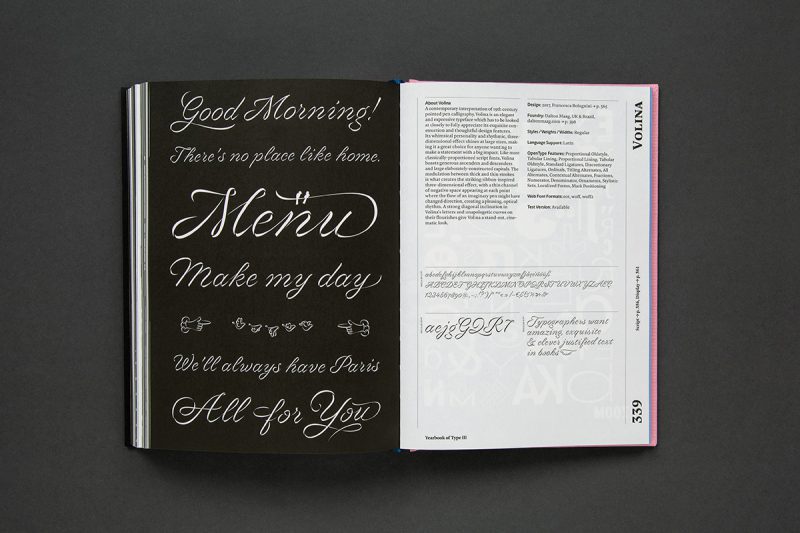 Good Morning!
There's no place like home.
Menu
Make my day
We'll always have Paris
All for You
About Volina
A contemporary interpretation of 19th century
pointed pen calligraphy, Volina is an elegant
and expressive typeface which has to be looked
at closely to fully appreciate its exquisite con-
struction and thoughtful design features.
Its whimsical personality and rhythmic, three-
dimensional effect shines at large sizes, mak-
ing it a great choice for anyone wanting to
make a statement with a big impact. Like most
classically-proportioned script fonts, Volina
boasts generous ascenders and descenders
and large elaborately-constructed capitals. The
modulation between thick and thin strokes
is what creates the striking ribbon-inspired
three-dimensional effect, with a thin channel
of negative space appearing at each point
where the flow of an imaginary pen might have
changed direction, creating a pleasing, optical
rhythm. A strong diagonal inclination in
Volina's letters and unapologetic curves on
their flourishes give Volina a stand-out, cine-
matic look.
Design: 2017, Francesca Bolognini → p. 365
Foundry: Dalton Maag, UK & Brazil,
daltonmaag.com → p. 398
Styles / Weights / Widths: Regular
Language Support: Latin
OpenType Features: Proportional Oldstyle,
Tabular Lining, Proportional Lining, Tabular
Oldstyle, Standard Ligatures, Discretionary
Ligatures, Ordinals, Titling Alternates, All
Alternates, Contextual Alternates, Fractions,
Numerator, Denominator, Ornaments, Stylistic
Sets, Localized Forms, Mark Positioning
Web Font Formats: eot, woff, woff2
Test Version: Available
aejgGQR7
Typographers want
amazing, exquisite
& clever justified text
in books
Yearbook of Type III
Volina
339